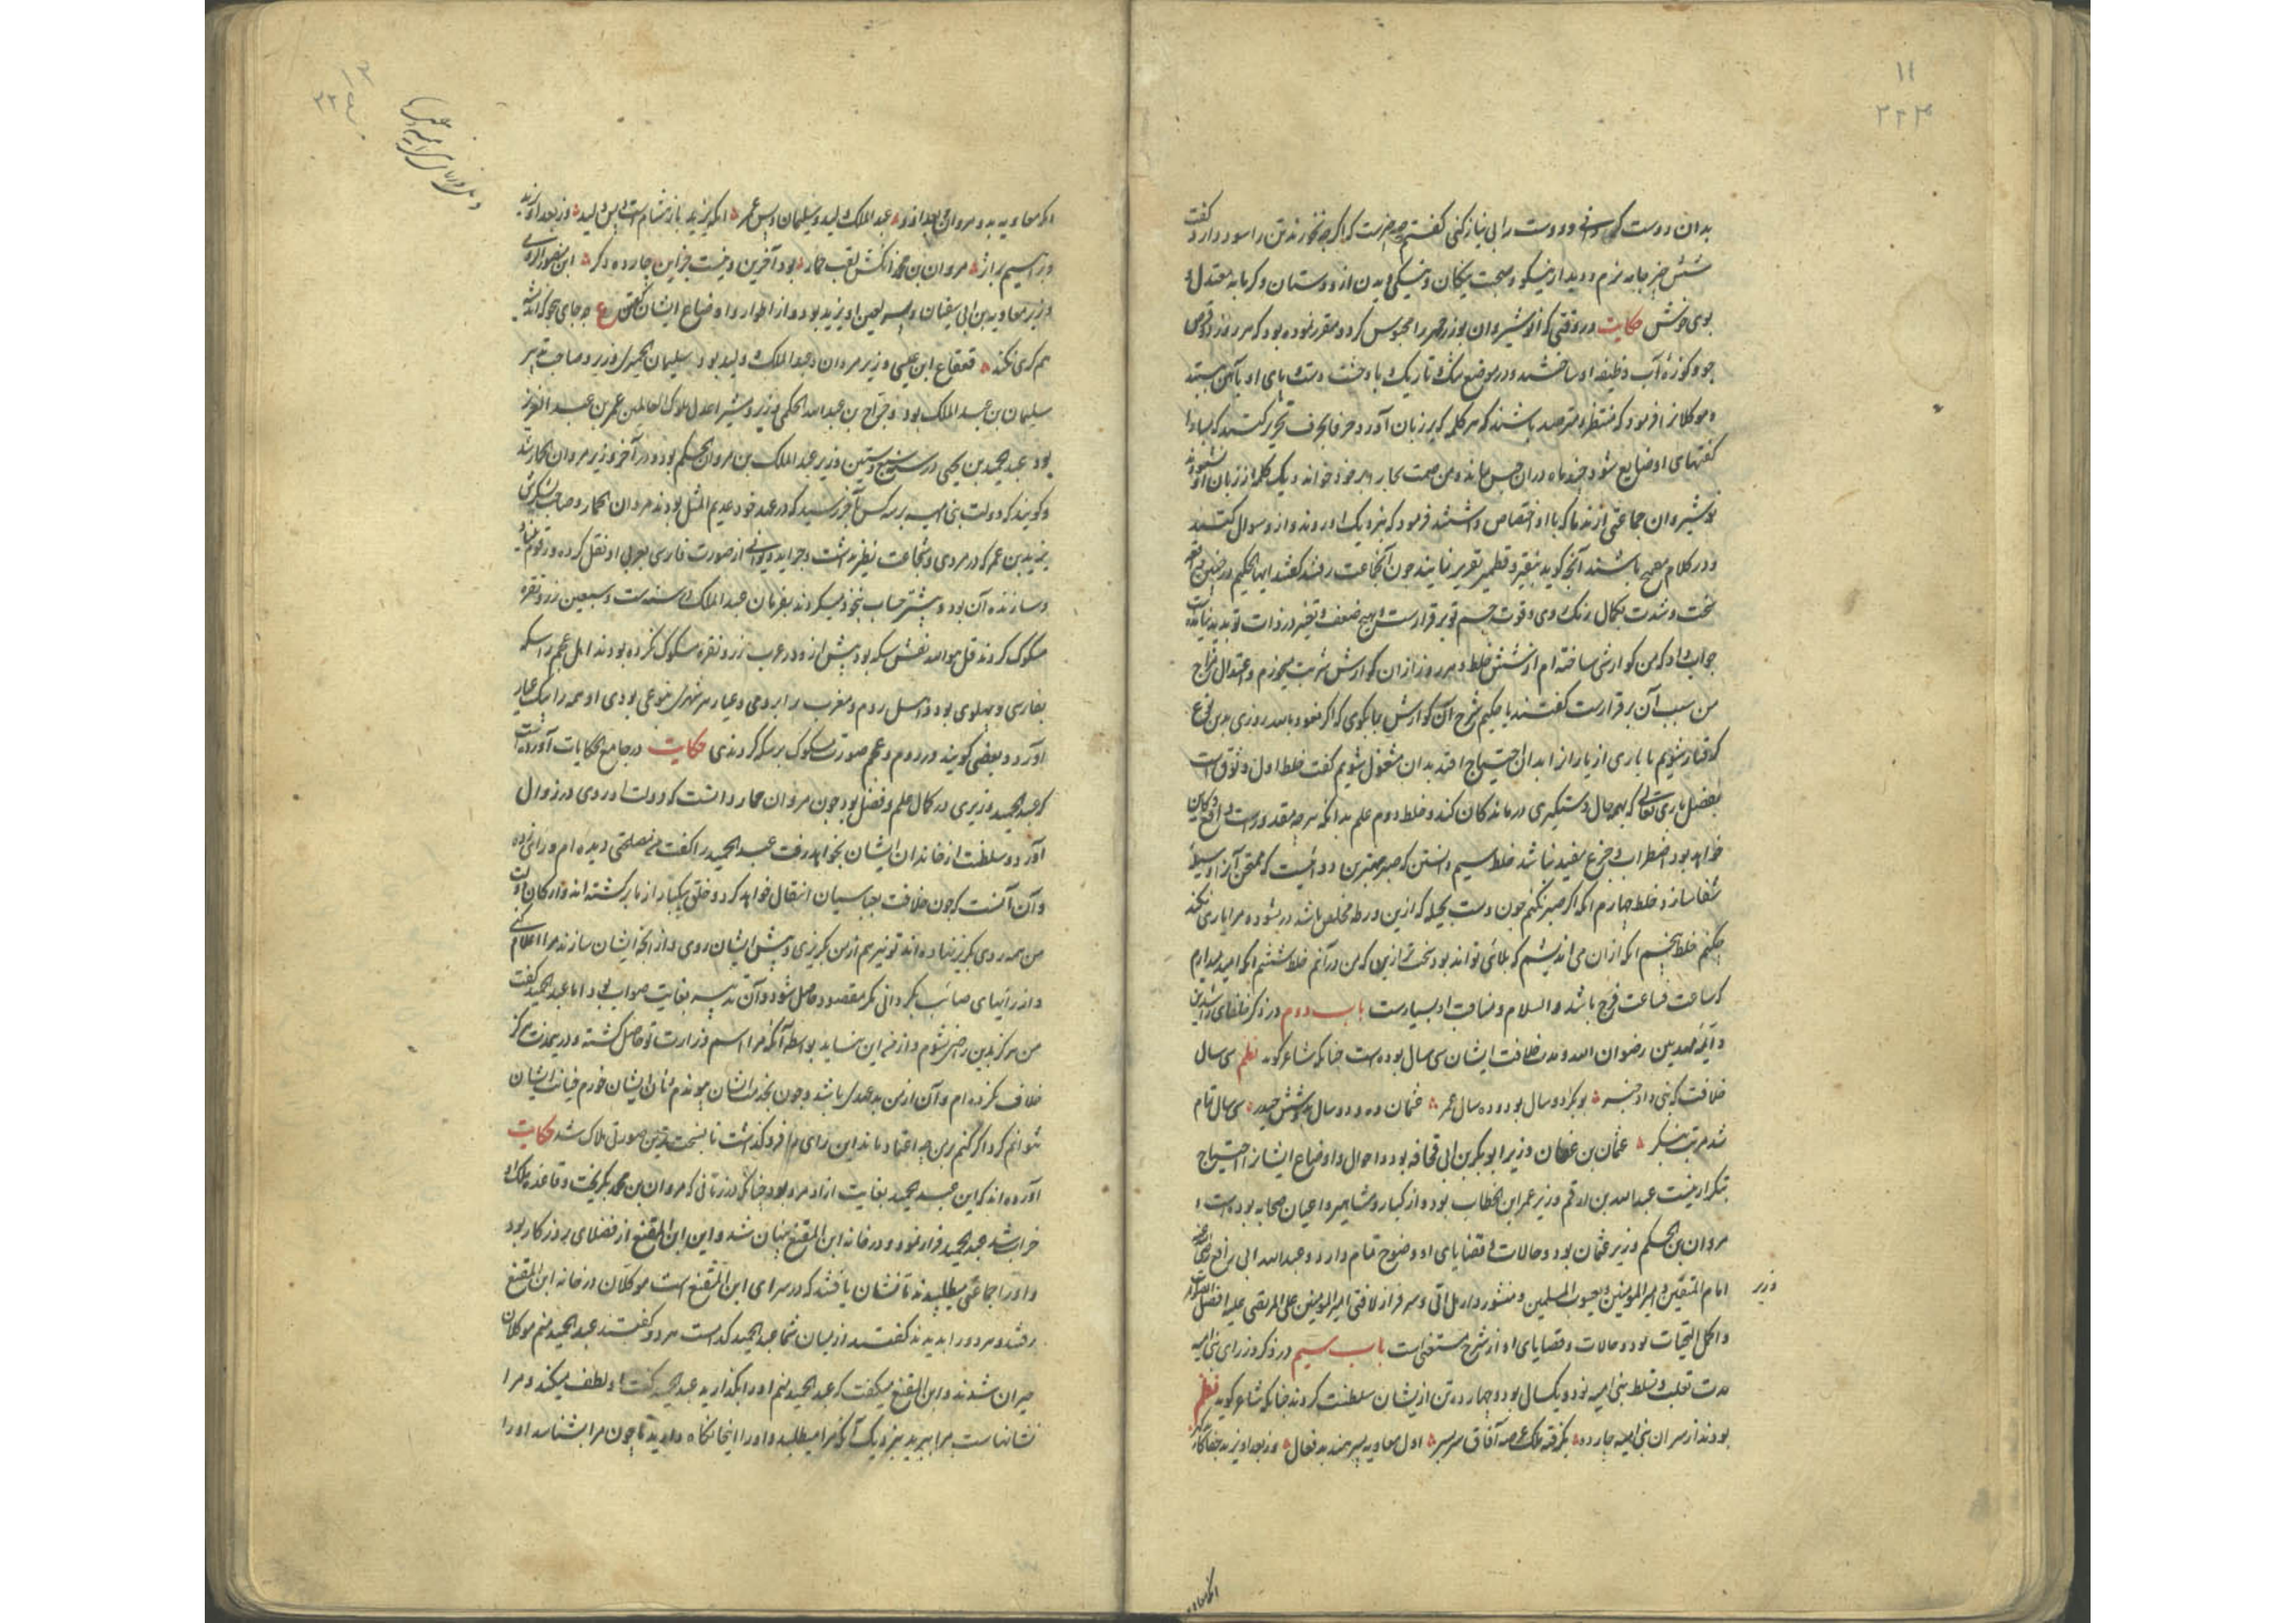 ۱۱
۲۲۳
بدان دوست کردانی و دوست را بی نیاز کنی گفتم چه چیزست که اگر چه نخورند تن را سود دارد گفت
شش چیز جامه نرم و دیدار نیکو و صحبت نیکان و نیکی دیدن از دوستان و کرمابه معتدل و
بوی خوش حکایت در وقتی که انوشیروان بوزرجمهر را محبوس کرد و مقرر نموده بود که هر روز دو قرص
جو و کوزه آب وظیفه او ساختند و در موضع تنک و تاریک باز داشت دست و پای او بآهن بستند
و موکلانرا فرمود که منتظر و مترصد باشند که هر کلمه که بر زبان آورد حرفا بحرف تحریر کنند که مبادا
گفتهای او ضایع شود چند ماه دران حبس بماند و من صمت نجا بر خود خواند و یک کلمه از زبان او نشنودند
نوشیروان جماعتی از ندما که با او اختصاص داشتند فرمود که بنزدیک او روند و ازو سوال کنند
و در کلام فصیح باشند آنچ کوید بنقیر و قطمیر تقریر نمایند چون آنجماعت رفتند گفتند ایها الحکیم در چنین
سخت و شدت بکمال رنک روی و قوت جسم تو برقرارست و هیچ ضعف و تغیر در ذات تو پدید نیامده
جواب داد که من کوارشی ساخته ام از شش خلط و هر روز ازان کوارش شربت میخورم و اعتدال مزاج
من بسبب آن برقرارست گفتند یا حکیم شرح آن کوارش بما بکوی که اگر نعوذ بالله روزی بدین نوع
گرفتار شویم یا یاری از یاران را بدان احتیاج افتد بدان مشغول شویم گفت خلط اول وثوق است
بفضل باری تعالی که بهمه حال دستگیری درماندکان کند و خلط دوم علم بدانکه هر چه مقدورست واقع و کاین
خواهد بود اضطراب و جزع مفید نباشد خلط سیم دانستن که صبر بهترین دوائیست که ممتحن آنرا وسیله
شفا سازد خلط چهارم انکه اگر صبر نکنم چون دست بحیله که ازین ورطه مخلص باشد نرسد مرا یاری نکند
چکنم خلط پنجم انکه ازان می اندیشم که بلائی تواند بود سخت تر ازین که من درآنم خلط ششم انکه امید میدارم
که ساعت فساعت فرج باشد والسلام و مناقب او بسیارست باب دوم در ذکر خلفای راشدین
و آئمه مهدیین رضوان الله و مدت خلافت ایشان سی سال بوده است چنانکه شاعر کوید نظم سی سال
خلافت که نبی داد خبر بوبکر دو سال بود و ده سال عمر عثمان ده و دو سال بد و شش حیدر سی سال تمام
شد مرتب بنگر عثمان بن عفان وزیر ابوبکر بن ابی قحافه بود و احوال و اوضاع ایشانرا احتیاج
بتکرار نیست عبدالله بن ارقم وزیر عمر ابن الخطاب بوده و از کبار و مشاهیر و اعیان صحابه بوده است و
مروان بن الحکم وزیر عثمان بود و حالات و قضایای او وضوح تمام دارد و عبدالله ابی رافع
وزیر
امام المتقین و امیر المومنین و یعسوب المسلمین و منشور دار هل اتی و سرفراز لافتی امیر المومنین علی المرتضی علیه افضل الصلوات
و اکمل التحیات بود و حالات و قضایای او از شرح مستغنی است باب سیم در ذکر وزرای بنی امیه
مدت تغلب و تسلط بنی امیه نود و یک سال بود و چهارده تن از یشان سلطنت کردند چنانکه شاعر کوید نظم
بودند از سران بنی امیه چارده بکرفته ملک عرصه آفاق سربسر اول معاویه پسر هند بد فعال وز بعد او یزید جفاکار
انکه معاویه
انکه معاویه بد و مروان بعد ازو عبدالملک ولید و سلیمان و پس عمر انکه یزید باز هشام است و پس ولید وز بعد او یزید
وز براهیم مروان بن محمد انکش لقب حمار بود آخرین و نیست جزاین چارده دکر
وزیر معاویه بن ابی سفیان و پسر لعین او یزید بود و از اطوار و اوضاع ایشان گفتن ع چه جای
هم کری نکند قعقاع ابن عیسی وزیر مروان و عبدالملک و ولید بود سلیمان حمیری وزیر و صاحب تدبیر
سلیمان بن عبد الملک بود و جراح بن عبدالله الحکمی وزیر و مشیر اعدل ملوک العالمین عمر بن عبد العزیز
بود عبدالحمید بن یحیی در سنه سبع و ستین وزیر عبدالملک بن مروان الحکم بود و در آخر وزیر مروان الحمار شد
و کویند که دولت بنی امیه بر سه کس آخر رسید که در عهد خود عدیم المثل بودند مروان الحمار و صاحب لشکرش
یزید بن عمر که در مردی و شجاعت نظیر نداشت و جراید دیوانی از صورت فارسی بعربی او نقل کرده و رقوم
و سازنده آن بود و پیشتر حساب میکردند بفرمان عبدالملک در سنه ست و سبعین زر و نقره
مسکوک کردند قل هو الله نقش سکه بود پیش ازو در عرب زر و نقره مسکوک نکرده بودند اهل عجم را سکه
بفارسی و پهلوی بود و اهل روم و مغرب را برومی و عیار هر شهری بنوعی بودی او همه را بیک عیار
آورد و بعضی کویند در روم و عجم صورت ملوک بر سکه کردندی حکایت در جامع الحکایات آورده است
که عبدالحمید وزیری در کمال علم و فضل بود چون مروان حمار دانست که دولت او روی در زوال
آورد و سلطنت از خاندان ایشان بخواهد رفت عبدالحمید را گفت من مصلحتی دیده ام و رائی زده
و آن آنست که چون خلافت بعباسیان انتقال خواهد کرد و خلق بیکبار از ما برکشته اند و ارکان دولت
من همه روی بکریز نهاده اند تو نیز هم از من بکریزی و پیش ایشان روی و از انچه ایشان سازند مرا اعلام کنی
و از رائیهای صائب نکردانی مکر مقصود حاصل شود و آن تدبیر بغایت صواب بود اما عبدالحمید گفت
من هرکز بدین راضی نشوم و از من این نیاید بواسطه آنکه مرا اسم وزارت تو حاصل کشته و در خدمت هرکز
خلاف نکرده ام و آن از من بدعهدی باشد و چون بخدمت ایشان پیوندم و نان ایشان خورم خیانت ایشان
نتوانم کرد اگر کنم بر من چه اعتماد ماند این رای را فرو گذاشت تا بسخت ترین صورتی هلاک شد حکایت
آورده اند که این عبدالحمید بغایت آزاد مرد بود چنانکه در زمانی که مروان بن محمد بکریخت و قاعده ملک او
خراب شد عبدالحمید فرار نمود و در خانه ابن المقنع پنهان شد و این ابن المقنع از فضلای روزکار بود
و او را جماعتی میطلبیدند تا نشان یافتند که در سرای ابن المقنع است موکلان در خانه ابن المقنع
رفتند و هر دو را بدیدند گفتند از میان شما عبدالحمید کدامست هر دو گفتند عبدالحمید منم موکلان
حیران شدند و ابن المقنع میکفت که عبدالحمید منم او را بکذارید عبدالحمید گفت او لطف میکند و مرا
نشانهاست مرا ببرید بنزدیک آنکه مرا میطلبد و او را اینجا نکاه دارید تا چون مرا بشناسد او را